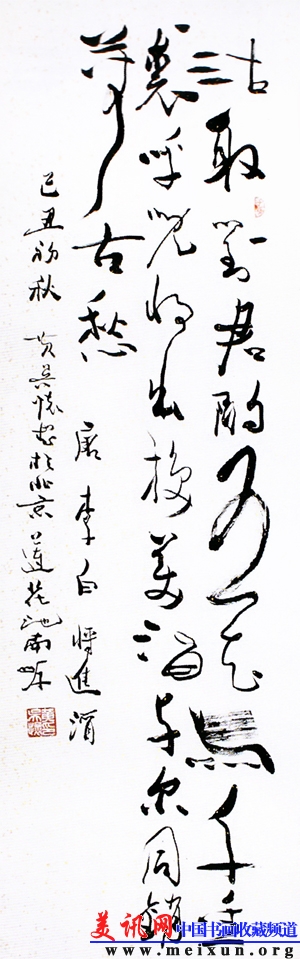 沽取對君酌五花馬千金
裘呼兒將出換美酒與爾同銷
萬古愁 唐李白將進酒
己丑初秋 黄吴懷 於北京蓮花池南畔
美讯网 中国书画收藏频道
www.meixun.org